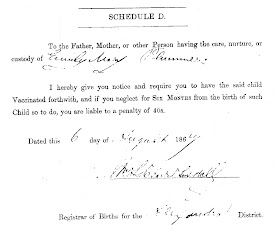 SCHEDULE D.
To the Father, Mother, or other Person having the care, nurture, or
custody of Emily May Plummer
I hereby give you notice and require you to have the said child
Vaccinated forthwith, and if you neglect for SIX MONTHS from the birth of such
Child so to do, you are liable to a penalty of 40s.
Dated this 6 day of August 186
Registrar of Births for the District.